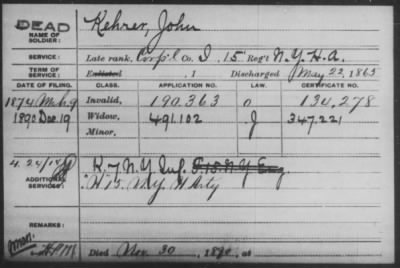 DEAD
NAME OF SOLDIER: Kehrer, John
SERVICE: Late rank, Corp'l Co. I, 15 Reg't N.Y.H.A.
TERM OF SERVICE: Enlisted , 1 Discharged May 22, 1865
DATE OF FILING. CLASS. APPLICATION NO. CERTIFICATE NO.
1874 Mch. 9 Invalid, 190.363 134,278
1890 Dec. 19 Widow, 491.102 J 347.221
Minor,
4.24/14
ADDITIONAL SERVICES: K. 7 N.Y. Inf. F 15 N.Y. Eng.
H 15 N.Y. H Arty
REMARKS:
Died Nov. 30, 1890, at